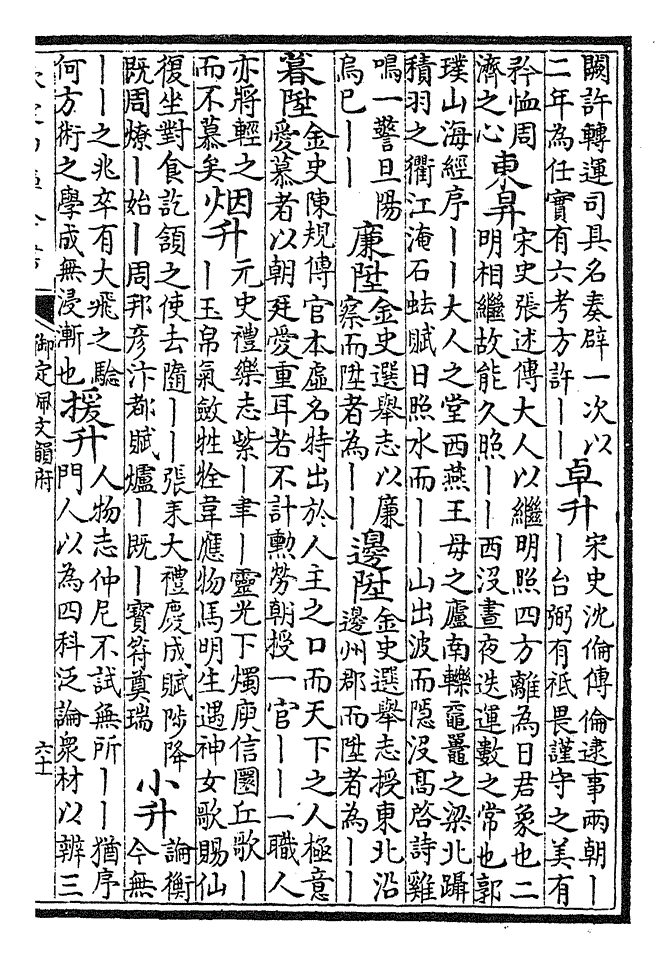 闕許轉運司具名奏辟一次以
二年為任實有六考方許丨丨
卓升
宋史沈倫傳倫逮事兩朝丨
丨台弼有祗畏謹守之美有
矜恤周
濟之心
東昇
宋史張述傳大人以繼明照四方離為日君象也二
明相繼故能久照丨丨西沒晝夜迭運數之常也郭
璞山海經序丨丨大人之堂西燕王母之廬南轢黿鼉之梁北躡
積羽之衢江淹石蚨賦日照水而丨丨山出波而隱沒高啓詩雞
鳴一警旦陽
烏巳丨丨
廉陞
金史選舉志以廉
察而陞者為丨丨
邊陞
金史選舉志授東北沿
邊州郡而陞者為丨丨
暮陞
金史陳規傳官本虛名特出於人主之口而天下之人極意
愛慕者以朝廷愛重耳若不計勳勞朝授一官丨丨一職人
亦將輕之
而不慕矣
烟升
元史禮樂志紫丨聿丨靈光下燭庾信圜丘歌丨
丨玉帛氣斂牲牷韋應物馬明生遇神女歌賜仙
復坐對食訖頷之使去隨丨丨張耒大禮慶成賦陟降
既周燎丨始丨周邦彦汴都賦爐丨既丨寶符奠瑞
小升
論衡
今無
丨丨之兆卒有大飛之驗
何方術之學成無浸漸也
援升
人物志仲尼不試無所丨丨猶序
門人以為四科泛論衆材以辨三
御定佩文韻府
六十